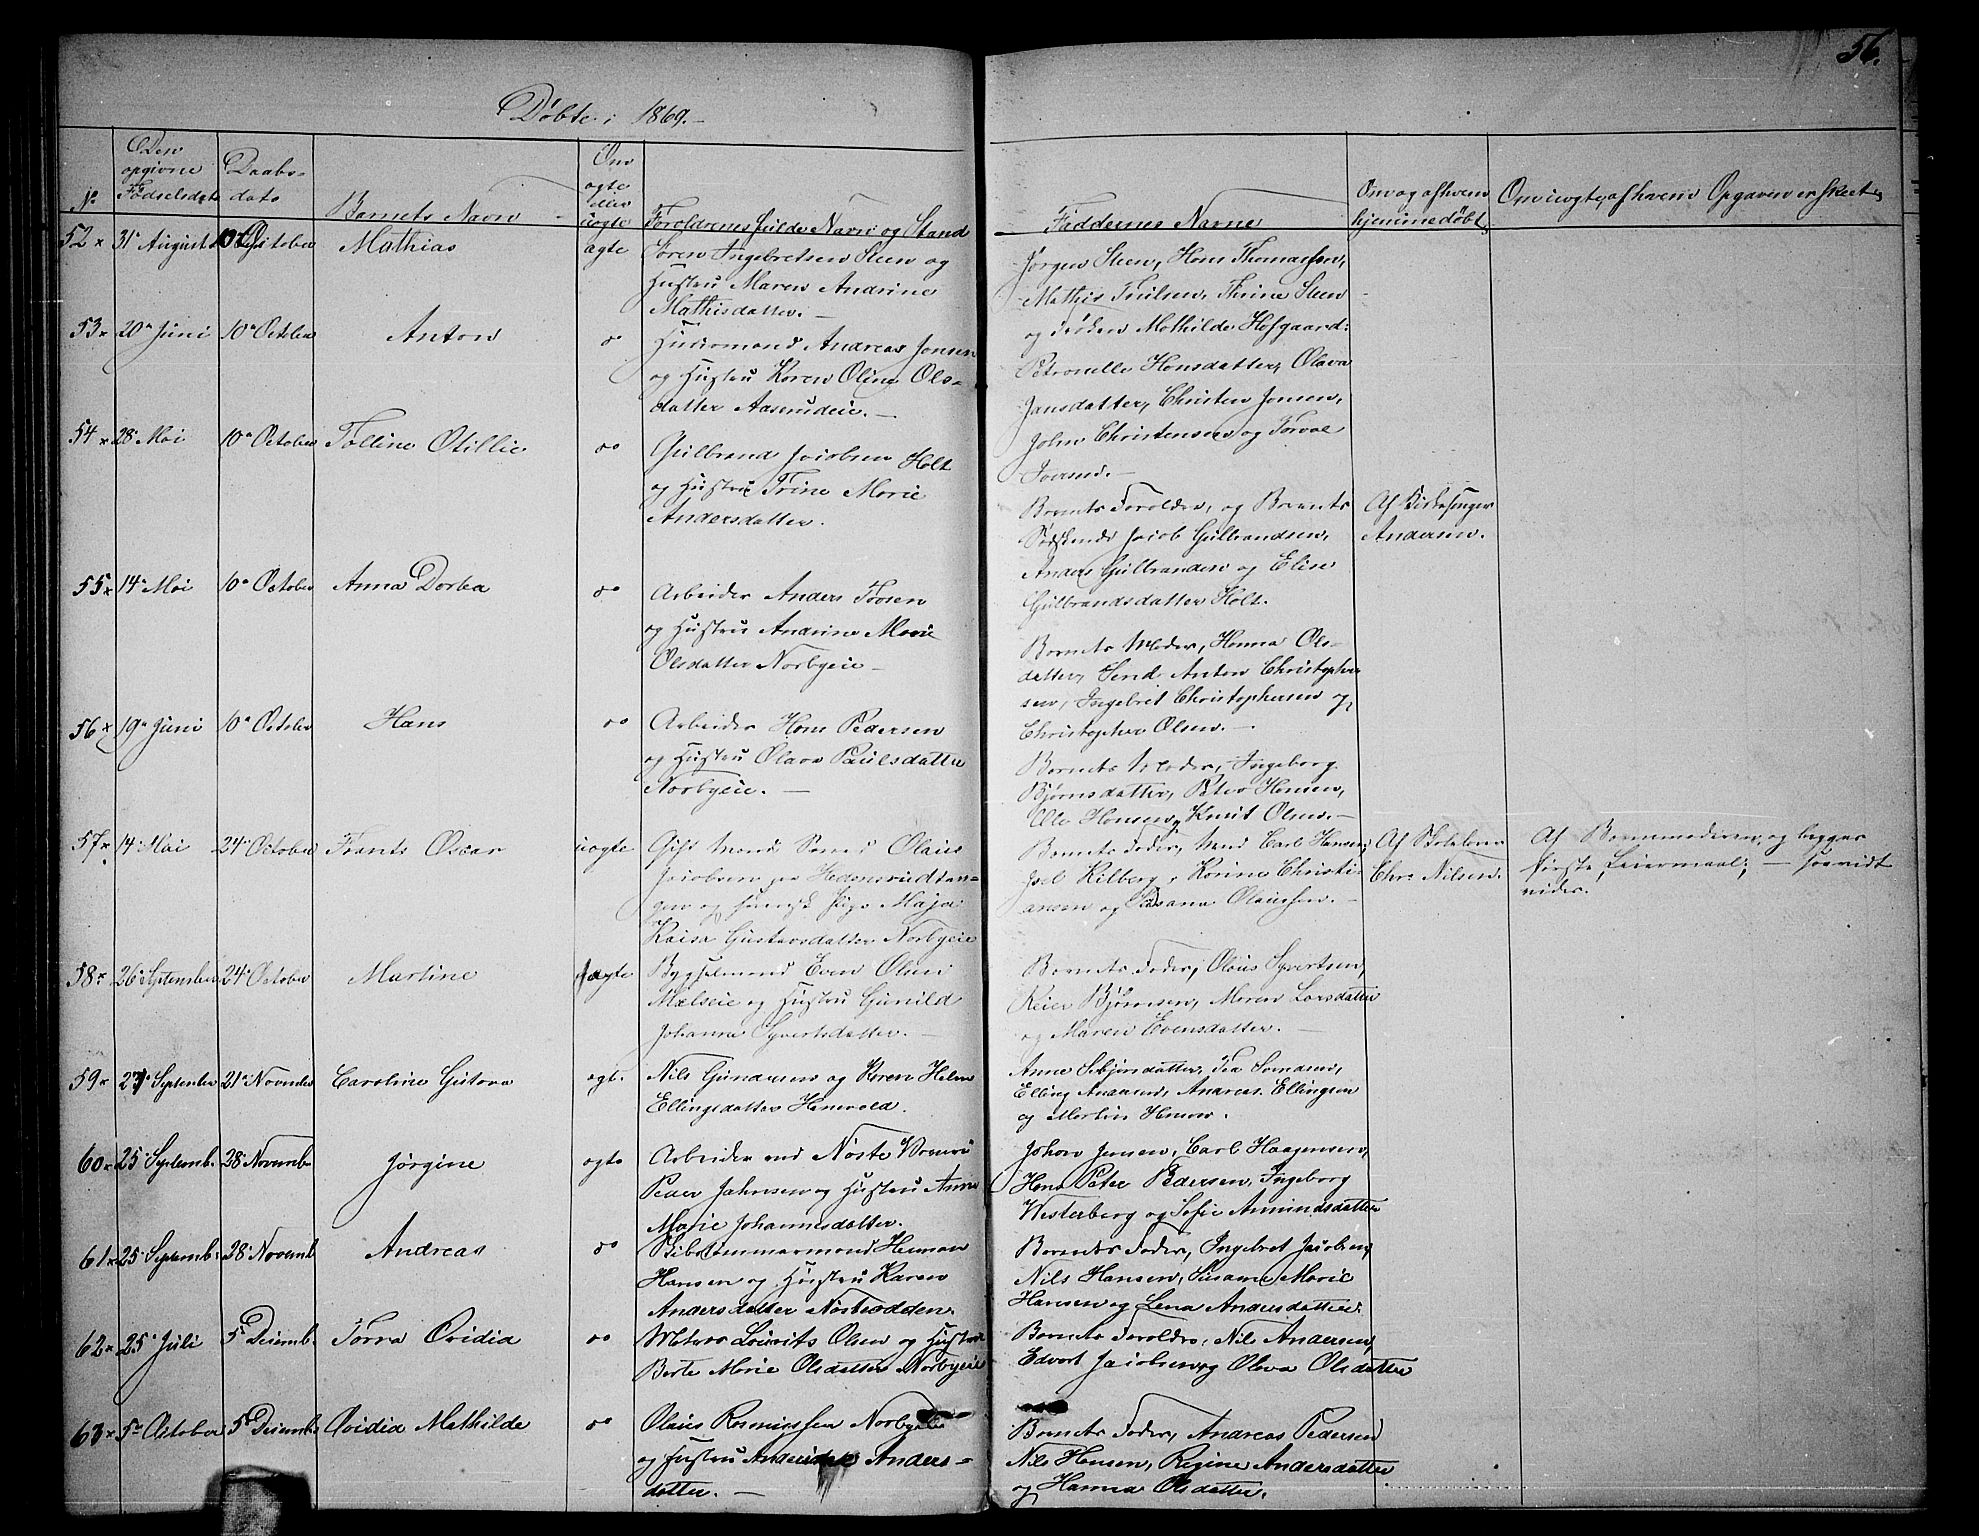 56.
Døbte i 1869.
No
Den opgivne Fødselsdato
Daabsdato
Barnets Navn
Om ægte eller uægte
Forældrenes fulde Navn og Stand
Faddernes Navne
Om og af hvem hjemmedøbt
Om uægte, af hvem Opgaven er skeet
52 x 31 August 10 October Mathias ægte
Søren Ingebretsen Steen og
Hustru Maren Andrine
Mathisdatter. —
Jørgen Steen, Hans Thomassen,
Mathis Truilsen, Thrine Steen
og Frøken Mathilde Hofgaard:
53 x 20 Juni 10 October Anton do
Huusmand Andreas Jonsen
og Hustru Karen Oline Ols-
datter Aaserudeie. —
Petronelle Hansdatter, Olava
Jansdatter, Christen Jonsen,
John Christensen og Torval
Iversen. —
54 x 28 Mai 10 October Tolline Otillie do
Gulbrand Jacobsen Holt
og Hustru Trine Marie
Andersdatter.
Barnets Forældre, og Barnets
Sødskende Jacob Gulbrandsen,
Anders Gulbrandsen og Elise
Gulbrandsdatter Holt.
Af Kirkesanger
Andersen.
55 x 14 Mai 10 October Anna Dorthea do
Arbeider Anders Toosen
og Hustru Andrine Marie
Olsdatter Norbyeie —
Barnets Moder, Hanna Ols-
datter, Send Anton Christopher
sen, Ingebret Christophersen og
Christopher Olsen. —
56 x 19 Juni 10 October Hans do
Arbeider Hans Pedersen
og Hustru Olava Paulsdatter
Norbyeie. —
Barnets Moder, Ingeborg
Bjørnsdatter, Peter Hansen,
Ole Hansen, Knut Olsen. —
57 x 14 Mai 24 October Frants Oscar uægte
Gift Mand Olaus
Jacobsen paa Hedensrudtan-
gen og svensk Pige Maja
Kaisa Gustavsdatter Norbyeie
Barnets Fader, Carl Hansen,
Kilberg, Karine Christi-
ansen og Susana Olaussen. —
Af Skolelærer
Chr. Nilsen.
Af Barnemoderen, og begges
første Leiermaal; — saavidt
vides.
58 x 26 September 24 October Martine ægte
Bygselmand Even Olsen
Mælseie og Hustru Gunild
Johanna Syvertsdatter. —
Barnets Fader, Olaus Syvertsen,
Reier Bjørnsen, Maren Larsdatter
og Maren Evensdatter. —
59 x 27 September 21 November Caroline Gustava ægt.
Nils Gundersen og Karen Helene
Ellingsdatter Hanevold.
Anne Asbjørsdatter,
Elling Andersen, Andreas Ellingsen
og Martin Hansen.
60 x 25 Septemb. 28 Novemb Jørgine ægte
Arbeider ved Næste
Peder Johnsen og Hustru Anne
Marie Johannesdatter.
Johan Jensen, Carl Haagensen,
Hans Peter Pedersen, Ingeborg
Westerberg og Sofie Amundsdatter
61 x 25 Septemb. 28 Novemb. Andreas do
Skibstømmermand Herman
Hansen og Hustru Karen
Andersdatter Næsteodden.
Barnets Fader, Ingebret Jacobsen,
Nils Hansen, Susanne Marie
Hansen og Lena Andersdatter.
62 x 25 Juli 5 Decemb. Torra Ovidia do
Matros Lourits Olsen og Hustru
Berte Marie Olsdatter Norbyeie
Barnets Forældre, Nils Andersen,
Edvart Jacobsen og Olava Olsdatter
63 x 5 October 5 Decemb. Ovidia Mathilde do
Olaus Rasmussen Norbyeie
og Hustru Anders-
datter. —
Barnets Fader, Andreas Pedersen
Nils Hansen, Regine Andersdatter
og Hanna Olsdatter.